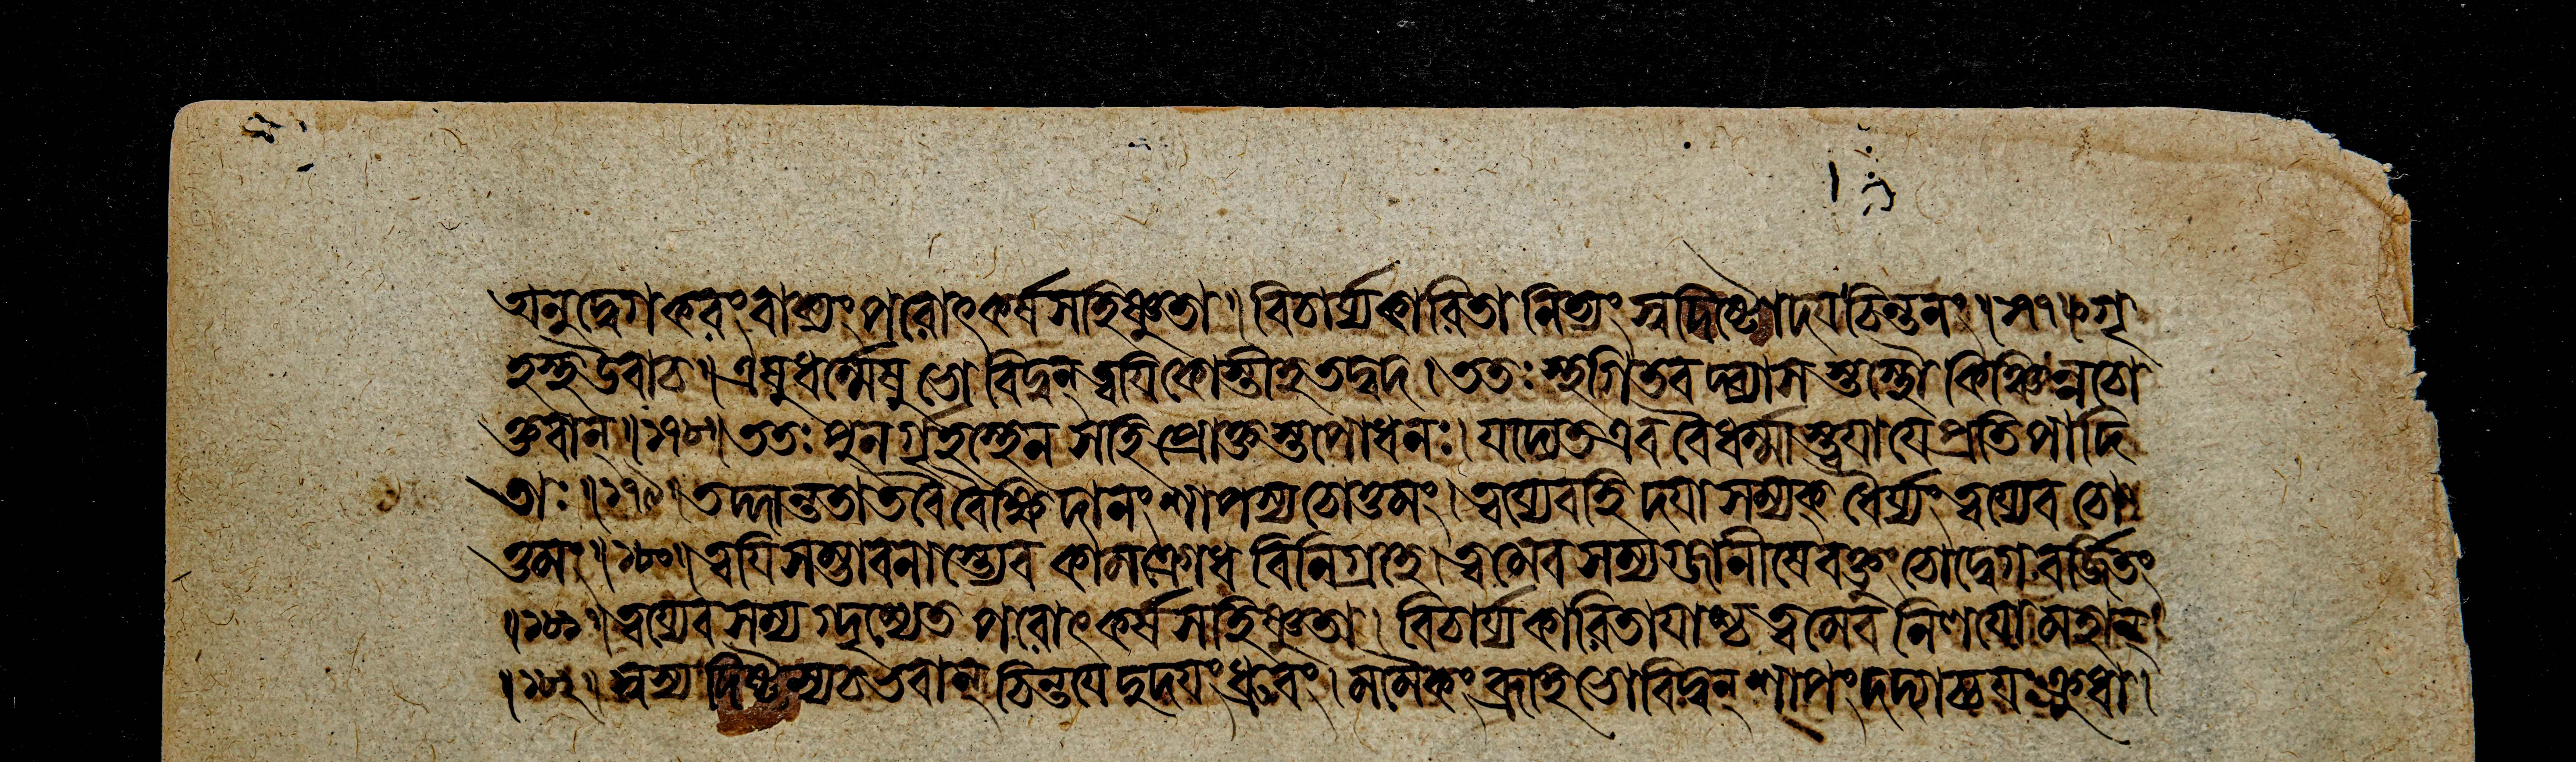 অনুদ্বেগকরং বাক্যং পরোৎকর্ষসহিষ্ণুতা । বিচার্য্যকারিতা নিত্যং স্বধিষ্ণ্যোদয়চিন্তনং । ১৭৭ । গৃ
হস্থ উবাচ । এষু ধর্ম্মেষু ভো বিদ্বন্ ত্বয়ি কোস্তীহ তদ্বদ । ততঃ স্থগিতবদ্ব্যাসস্তস্থৌ কিঞ্চিন্ন চো
ক্তবান্ ॥ ১৭৮ ॥ ততঃ পুনর্গৃহস্থেন স হি প্রোক্তস্তপোধনঃ । যদ্যত এব বৈ ধর্ম্মাস্ত্বয়া যে প্রতিপাদি
তাঃ ॥ ১৭৯ ॥ তদ্দান্ততা তবৈবৈক্ষি দানং শাপস্য চোত্তমং । ত্বয্যেব হি দয়া সম্যক্ ধৈর্য্যং ত্বয্যেব চো
ত্তমং ॥ ১৮০ ॥ ত্বয়ি সম্ভাবনাস্ত্যেব কামক্রোধ বিনিগ্রহে । ত্বমেব সম্যগ্জানীষে বক্তুং চোদ্বেগবর্জ্জিতং
॥ ১৮১ ॥ ত্বয্যেব সম্যগ্দৃশ্যেত পরোৎকর্ষসহিষ্ণুতা । বিচার্য্যকারিতায়াশ্চ ত্বমেব নিলয়ো মহান্
। ১৮২ । স্বস্য ধিষ্ণ্যস্য চ ভবান্ চিন্তয়েদুদয়ং ধ্রুবং । মমৈকং ব্রূহি ভো বিদ্বন্ শাপং দদ্যাচ্চ যঃ ক্রুধা ।